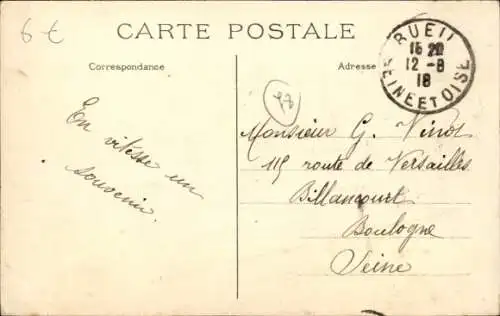 6 €
CARTE POSTALE
Correspondance
Adresse
RUEIL
15 20
12 - 8
18
SEINE ET OISE
97
En vitesse un
souvenir.
Monsieur G. Vinot
115 route de Versailles
Billancourt
Boulogne
Seine